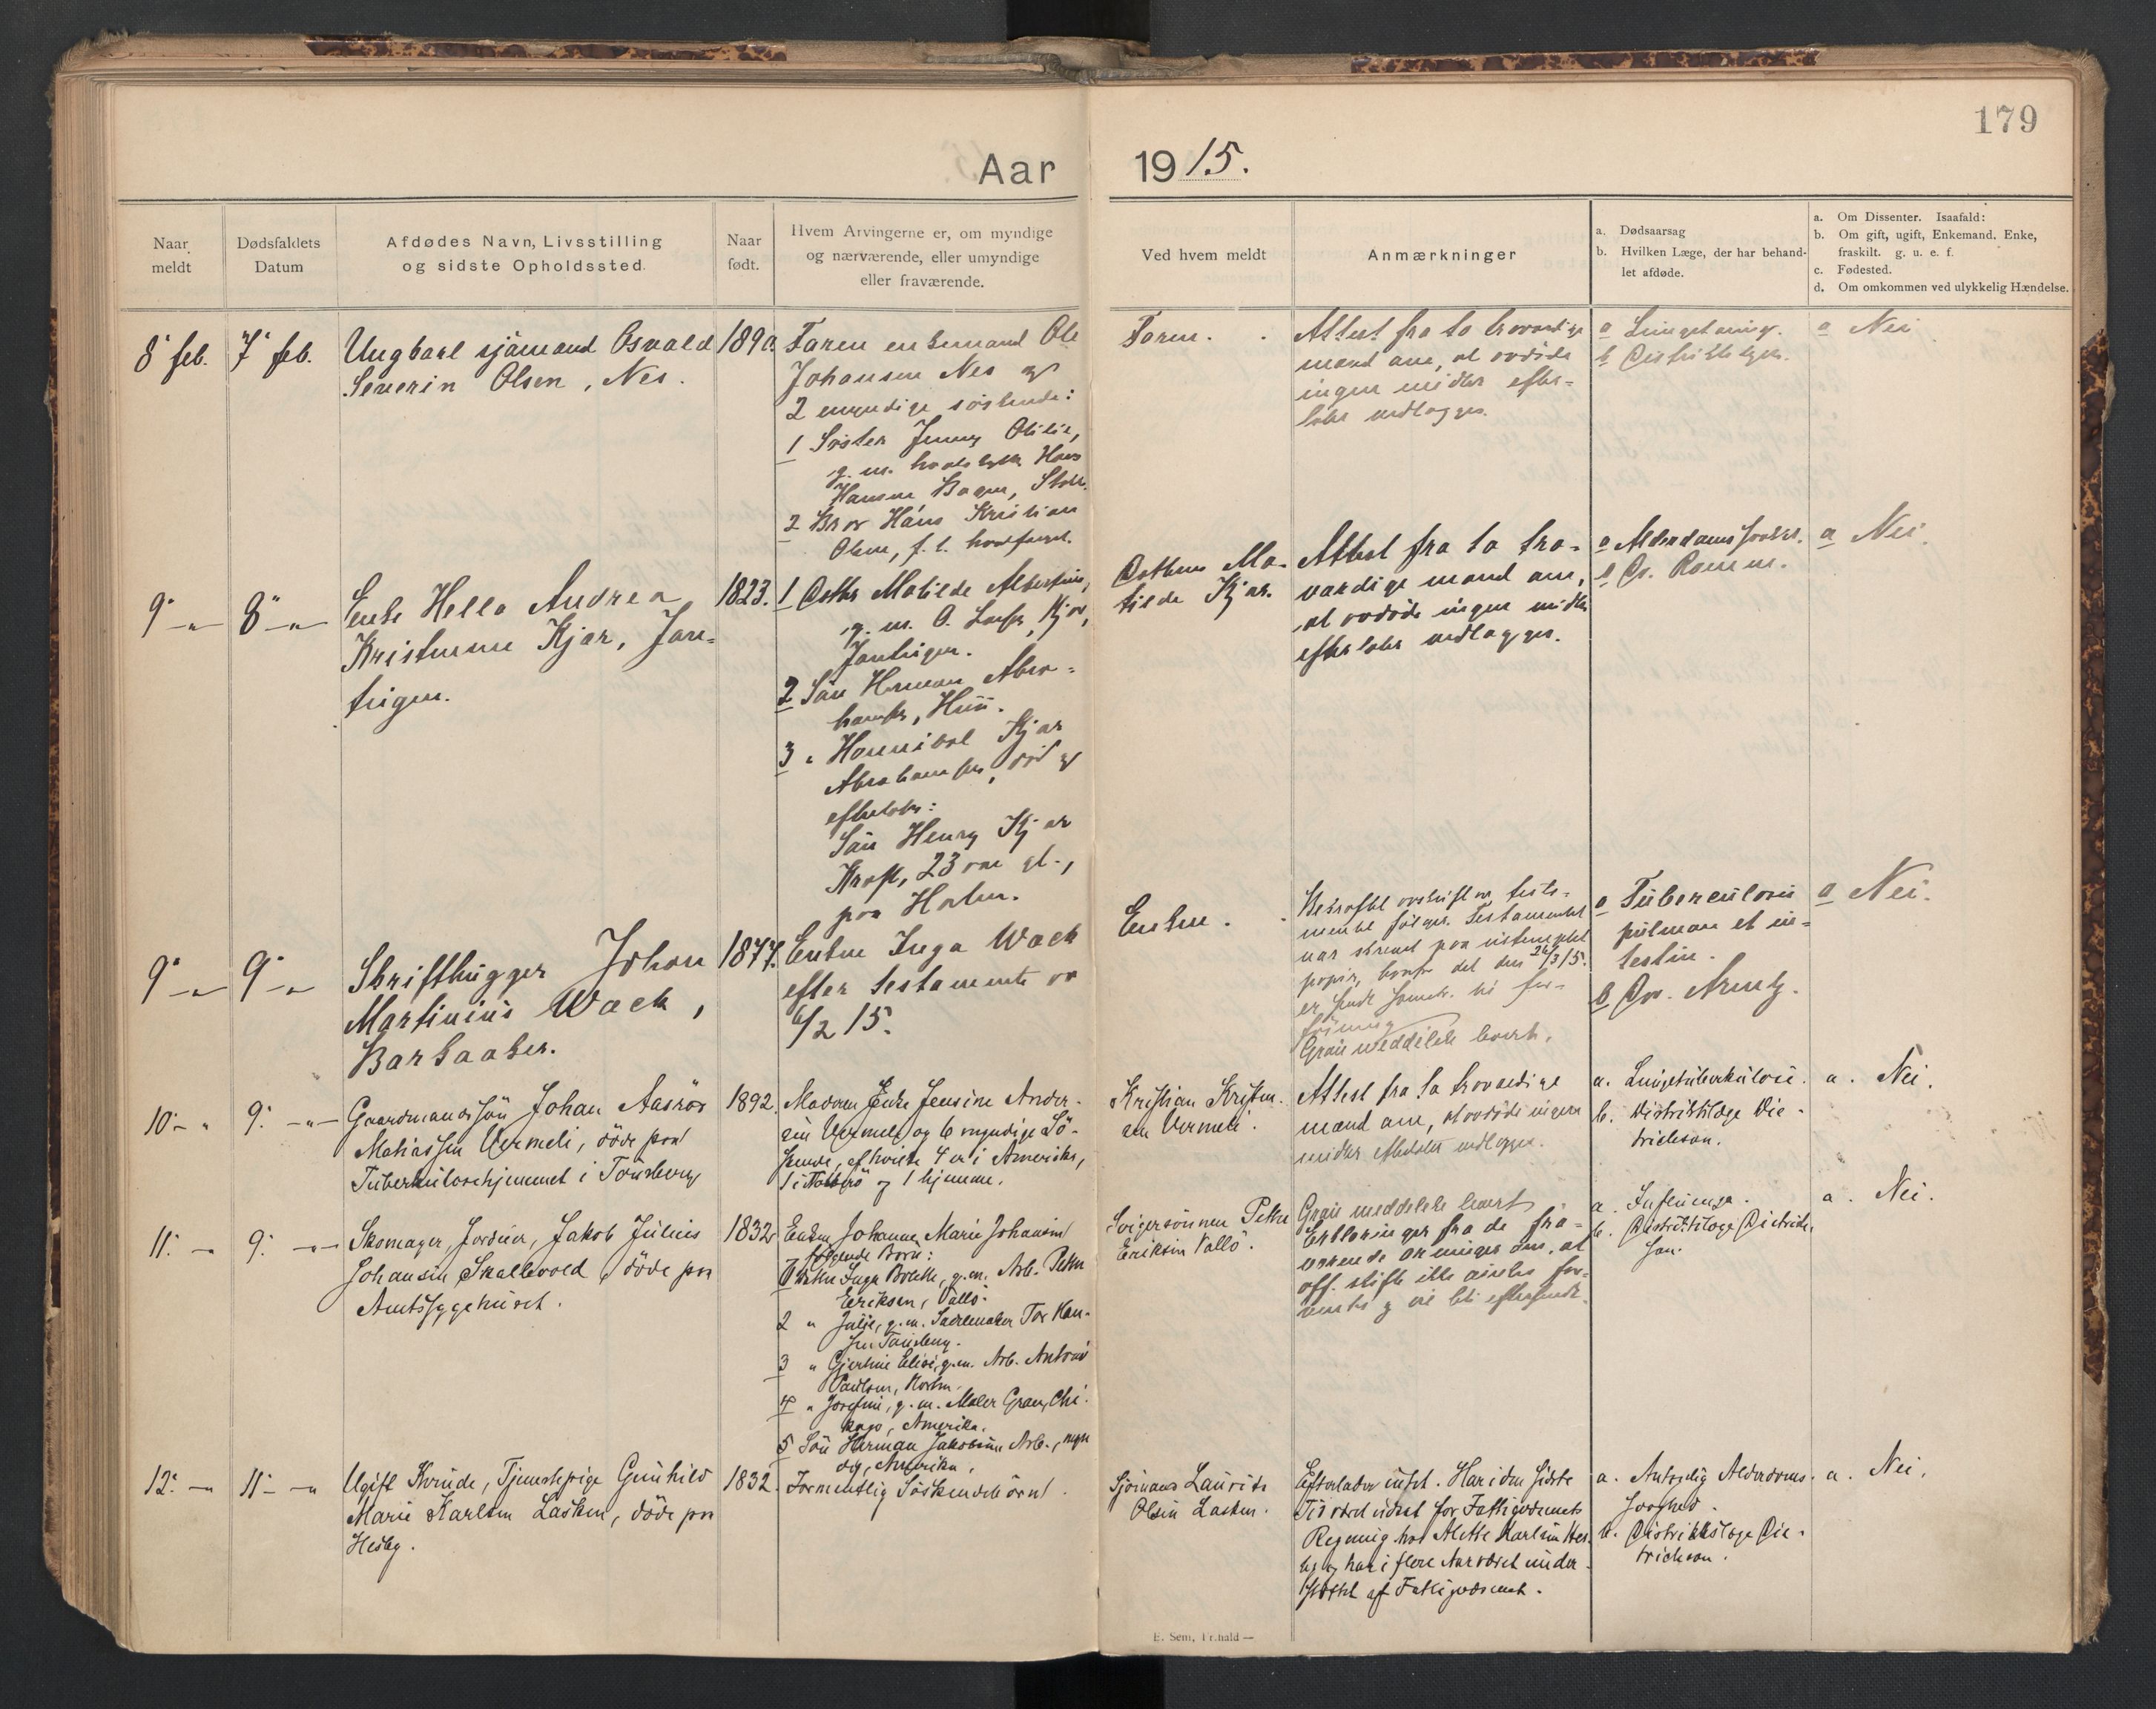 179
Aar 1915.
Naar meldt
Dødsfaldets Datum
Afdødes Navn, Livsstilling og sidste Opholdssted.
Naar født.
Hvem Arvingerne er, om myndige og nærværende, eller umyndige eller fraværende.
Ved hvem meldt
Anmærkninger
a. Dødsaarsag
b. Hvilken Læge, der har behand-
let afdøde.
a. Om Dissenter. Isaafald:
b. Om gift, ugift, Enkemand, Enke,
fraskilt. g. u. e. f.
c. Fødested.
d. Om omkommen ved ulykkelig Hændelse.
8' feb.
7' feb.
Ungkarl sjømand Osvald
Severin Olsen, Nes.
1890.
Faren enkemand Ole
Johansen Nes og
2 myndige søskende:
1 Søster Jenny Otilie,
g. m. Hans
Hansen Bogen,
2 Bror Hans Kristian
Olsen, f. t. hvalfangst.
Faren.
Attest fra to troværdige
mænd om, at avdøde
ingen midler efter-
later vedlægges.
a
b Distriktslægen.
a Nei
9" - " -
8 " - " -
Enke Helle Andrea
Kristense Kjær, Jar-
1823.
1 Datter Matilde Albertine,
g. m. O. Kjær,
2 Søn Herman Abra-
hamsen,
3 " Hannibal Kjær
Abrahamsen, død og
efterlater:
Søn Henry Kjær
23 aar gl.,
paa
Datteren Ma-
tilde Kjær.
Attest fra to tro-
værdige mænd om,
at avdøde ingen midler
efterlater vedlægges.
a Alderdomssvakhet.
b Dr. Ramm.
a Nei.
9" - " -
9" - " -
Skrifthugger Johan
Martinius Wæck,
Barkaaker.
1877.
Enken Inga Wæck
efter testamente av
6/2 15.
Enken.
Bekræftet avskrift av testa-
mentet følger. Testamentet
var skrevet paa ustemplet
papir, hvorfor det den 24/3 15.
er sendt
Grau meddelelse
a Tuberculosis
pulmon et in-
testin.
b Dr. Arentz.
a Nei.
10 - "
9' - " -
Gaardmandssøn Johan Aasrør
Mathiassen Vermeli, døde paa
Tuberkulosehjemmet i Tønsberg
1892.
Moderen Enke Jensine Ander-
sen Vermeli og 6 myndige Sø-
skende, af hvilke 4 er i Amerika,
1 i og 1 hjemme.
Kristian Kristen-
sen Vermeli.
Attest fra to troværdige
mænd om, at avdøde ingen
midler efterlater vedlægges.
a. Lungetuberkulose.
b. Distriktslæge Die-
trichson.
a. Nei.
11' - "
9' - " -
Skomager, Jordeier, Jakob Julius
Johansen Skallevold, døde paa
Amtssygehuset.
1832
Enken Johanne Marie Johansen
følgende Børn:
1 Datter Inga Bolette, g. m. Arb. Petter
Eriksen, Vallø.
2 " Julie, g. m. Sadelmaker Tor Han-
sen Tønsberg.
3 " Gjertine Elise, g. m. Arb. Anton
Paulsen, Horten.
4 " Josefine, g. m. Maler Gran, Chi-
kago, Amerika.
5 Søn Herman Jakobsen Arb., myn-
dig, Amerika.
Svigersønnen Petter
Eriksen Vallø.
Grau meddelelse
Erklæringer fra de fra-
værende arvinger om, at
off. skifte ikke ønskes for-
ventes og vil bli eftersendt.
a. Influenza.
b. Distriktslæge Dietrich-
son.
a. Nei.
12' - "
11 - - "
Ugift Kvinde, Tjenestepige Gunhild
Marie Karlsen Lasken, døde paa
Hesby.
1832.
Formentlig Søskendebørn.
Sjømand Laurits
Olsen Lasken.
Efterlader intet. Har i den sidste
Tid været udsat for Fattigvæsenets
Regning hos Alette Karlsen Hes-
by og har i flere Aar været under-
støttet af Fattigvæsenet.
a. Antagelig Alderdoms-
svaghed.
b. Distriktslæge Die-
trichson.
a. Nei.
E. Sem, Fr.hald —